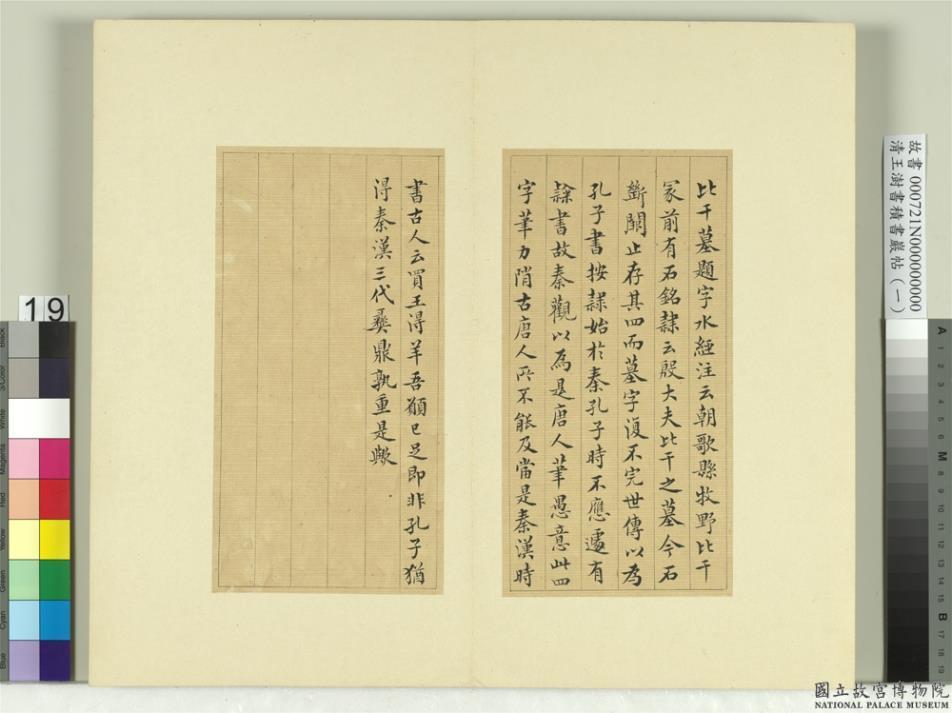 比干墓題字水經注云朝歌縣牧野比干
冢前有石銘隸云殷大夫比干之墓今石
斷闕止存其四而墓字復不完世傳以為
孔子書按隸始於秦孔子時不應遽有
隸書故秦觀以為是唐人筆愚意此四
字筆力陗古唐人所不能及當是秦漢時
書古人云買王得羊吾願已足即非孔子猶
得秦漢三代彝鼎孰重是歟
故書 000721N000000000
清王澍書積書巖帖(一)
19
Black
3/Color
White
Magenta
Red
Yellow
Green
Cyan
Blue
A
1
2
3
4
5
6
M
8
9
10
11
12
13
14
15
B
17
18
19
國立故宮博物院
NATIONAL PALACE MUSEUM